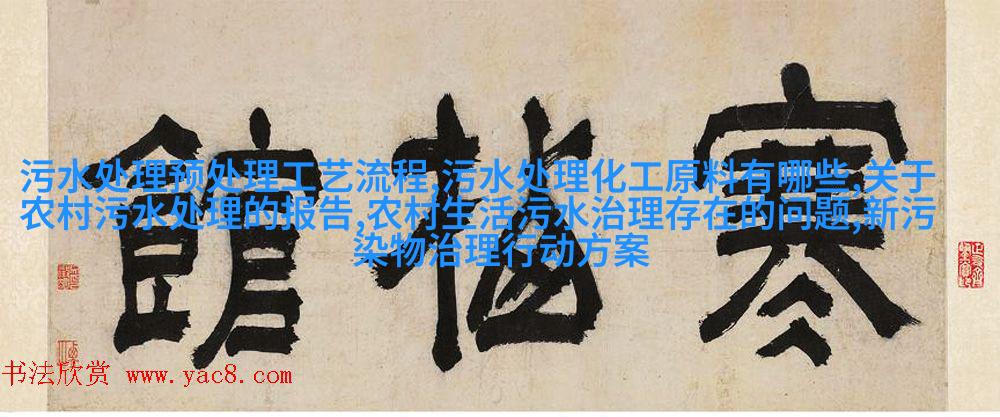 寒梅館
污水处理预处理工艺流程,污水处理化工原料有哪些,关于
农村污水处理的报告,农村生活污水治理存在的问题,新污
染物治理行动方案
书法欣赏 www.yac8.com